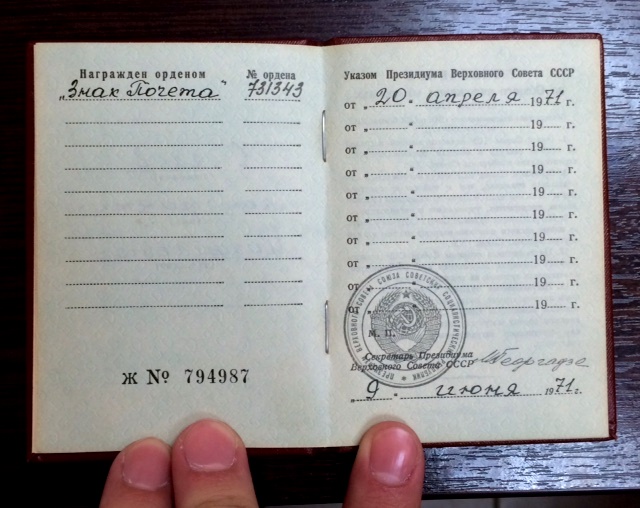 Награжден орденом
№ ордена
„Знак Почета“
731343
Ж № 794987
Указом Президиума Верховного Совета СССР
от „ 20 “ апреля 1971 г.
от „ “ 19 г.
от „ “ 19 г.
от „ “ 19 г.
от „ “ 19 г.
от „ “ 19 г.
от „ “ 19 г.
от „ “ 19 г.
от „ “ 19 г.
от „ “ 19 г.
М. П.
Секретарь Президиума
Верховного Совета СССР
МГеоргадзе
„ 9 “ июня 1971 г.